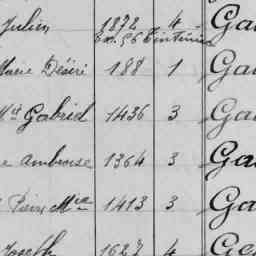 Julien 1872 4 Ga
Marie Désiré 188 1 Ga
Gabriel 1436 3 Ga
e Ambroise 1364 3 Ga
Pierre Mie 1413 3 Ga
Joseph 1627 4 Ge